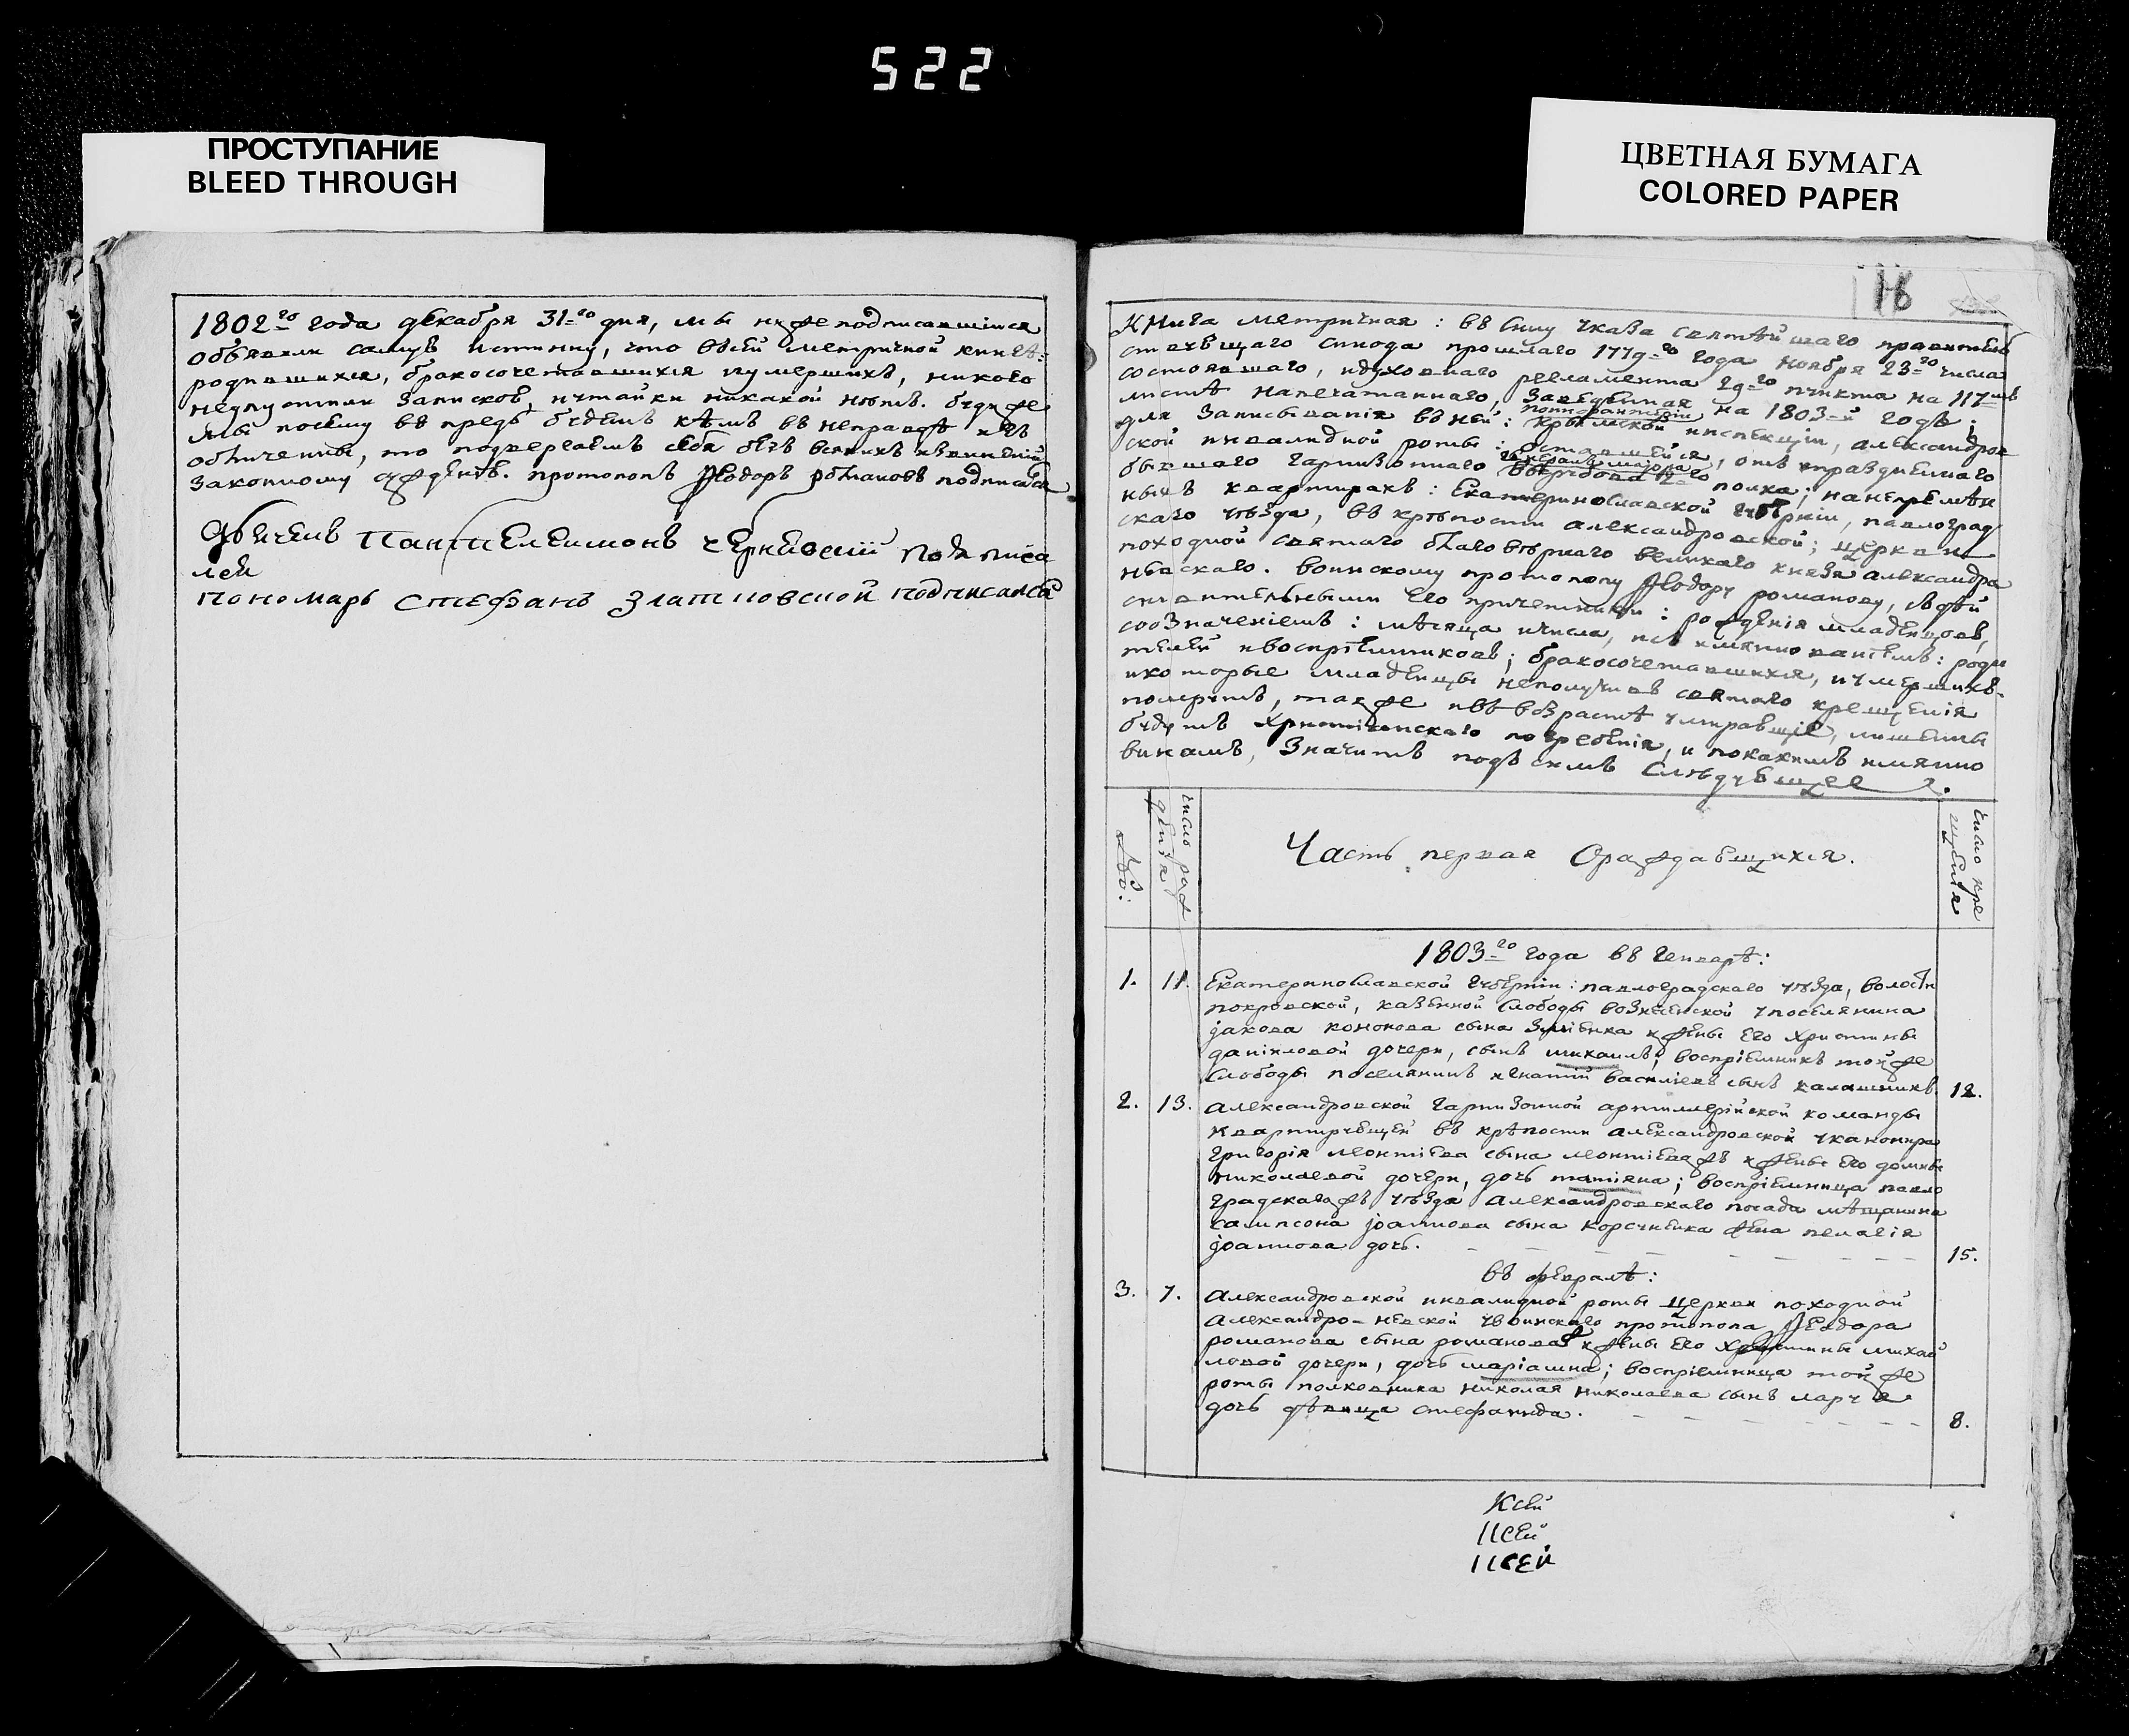 522
ПРОСТУПАНИЕ
BLEED THROUGH
ЦВЕТНАЯ БУМАГА
COLORED PAPER
1802го года декабря 31го дня, мы нижеподписавшіися
объявили самую истинну, что всей метричной книгѣ:
родившихся, бракосочетавшихся иумершихъ, никого
недпустили записковъ, иутайки никакой нѣтъ. буди же
мы посему въ предь будемъ кѣмъ въ неправдѣ изъ
обличены, то подвергаемъ себя безъ всякихъ извиненій
законному сужденію. протопопъ Ѳеодоръ романовъ подписался
Пантелеимонъ Подписа
лся
пономарь стефанъ Златковской подписался
Книга метричная: въ силу указа святѣйшаго правитель
ствующаго синода прошлаго 1779го года ноября 23го числа
состоявшаго, идуховнаго регламента 29го пункта на 117мъ
листѣ напечатаннаго, заведенная на 1803й годъ;
для записыванія въ ней: крымской инспекціи, александров
ской инвалидной роты: оставшейся, отъ упраздненнаго
бывшаго гарнизоннаго полка; нанепремѣн
ныхъ квартирахъ: Екатеринославской губерніи, павлоград
скаго уѣзда, въ крѣпости александровской; церкви
походной святаго благовѣрнаго великаго князя александра
невскаго. воинскому протопопу Ѳеодору романову,
его причетники: рожденія младенцовъ,
сознаменіемъ: мѣсяца ичисла, исъ имянованіемъ: роди
телей ивоспріемниковъ; бракосочетавшихся, иумершихъ.
икоторые младенцы неполучивъ святаго крещенія
помрутъ, также ивъ возрастѣ умиравшіе, лишены
будутъ Христіанскаго погребенія, и покакимъ имянно
винамъ, значитъ подъ симъ слѣдующее.
№:
число рож
денія
Часть первая Ораждающихся.
число кре
щенія
1803го года въ генварѣ:
1. 11. Екатеринославской губерніи: павлоградскаго уѣзда, волости
покровской, казенной слободы вознесенской упоселянина
јакова кононова сына Зміенка ижены его христины
даніиловой дочери, сынъ михаилъ; воспріемникъ тойже
слободы поселянинъ игнатій василіевъ сынъ калашникъ. 12.
2. 13. александровской гарнизонной артиллерійской команды
квартирующей въ крѣпости александровской уканонира
григорія леонтіева сына леонтіева жъ ижены его домны
николаевой дочери, дочь татіяна; воспріемница павло
градскагожъ уѣзда александровскаго посада мѣщанина
сампсона јоаннова сына корсуненка жена пелагія
јоаннова дочь. 15.
въ февралѣ:
3. 7. александровской инвалидной роты церкви походной
александро-невской увоинскаго протопопа Ѳеодора
романова сына романова ижены его христины михай
ловой дочери, дочь маріамна; воспріемница тойже
роты полковника николая николаева сынъ
дочь дѣвица стефанида. 8.
Ксей